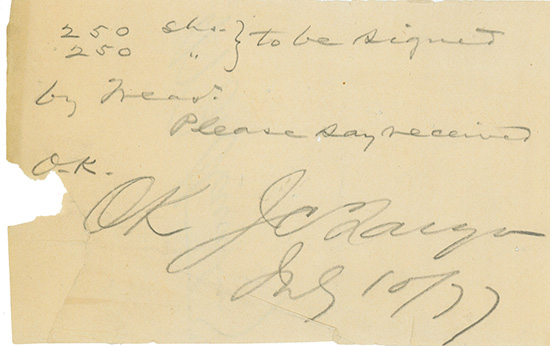 250 shs. } to be signed
250 "
by Treasr.
Please say received
O.K.
OK J C Fargo
July 10/77